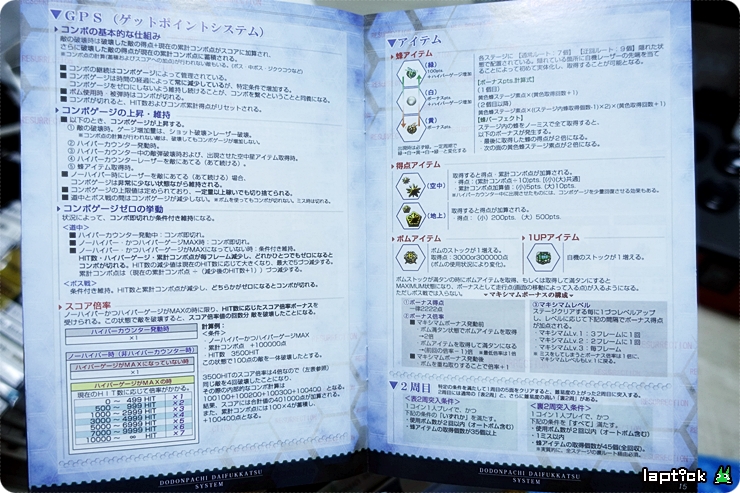 ▼GPS（ゲットポイントシステム）
▶コンボの基本的な仕組み
敵の破壊時は破壊した敵の得点＋現在の累計コンボ点がスコアに加算され、
さらに破壊した敵の得点が現在の累計コンボ点に蓄積される。
■コンボの継続はコンボゲージによって管理されている。
■コンボゲージは時間の経過によって常に減少しているが、特定条件で増加する。
コンボゲージをゼロにしないよう維持し続けることが、コンボを繋ぐということと同義になる。
■ボム使用時・被弾時はコンボが切れる。
■コンボが切れると、HIT数およびコンボ累計得点はリセットされる。
▶コンボゲージの上昇・維持
■以下のとき、コンボゲージが上昇する。
①敵の破壊時。ゲージ増加量は、ショット破壊＞レーザー破壊。
②ハイパーカウンター発動時。
③ハイパーカウンター中の敵弾破壊時および、出現させた空中星アイテム取得時。
④ハイパーカウンターレーザーを敵にあてる（あて続ける）。
⑤蜂アイテム取得時。
■ノーハイパー時にレーザーを敵にあてる（あて続ける）場合、
コンボゲージは非常に少ない状態ながら維持される。
■コンボゲージの上限値は定められており、一定量以上稼いでも切り捨てられる。
■道中とボス戦の間はコンボゲージが減少しない。
▶コンボゲージゼロの挙動
状況によって、コンボ即切れか条件付き維持になる。
＜道中＞
■ハイパーカウンター発動中：コンボ即切れ。
■ノーハイパー・かつハイパーゲージMAX時：コンボ即切れ。
■ノーハイパー・かつハイパーゲージがMAXになっていない時：条件付き維持。
HIT数・ハイパーゲージ・累計コンボ点が毎フレーム減少し、どれかひとつでもゼロになると
コンボが切れる。HIT数の減少値は現在のHIT数に応じて大きくなり、最大で5づつ減少する。
累計コンボ点は（現在の累計コンボ点 ÷（減少後のHIT数+1））づつ減少する。
＜ボス戦＞
条件付き維持。HIT数とコンボ点が減少し、どちらかがゼロになるとコンボが切れる。
▶スコア倍率
ノーハイパーかつハイパーゲージがMAXの時に限り、HIT数に応じたスコア倍率ボーナスを
受けられる。この状態で敵を破壊すると、スコア倍率値の回数分 敵を破壊したことになる。
ハイパーカウンター発動時
×1
ノーハイパー時（非ハイパーカウンター時）
ハイパーゲージがMAXになっていない時
×1
ハイパーゲージがMAXの時
現在のHIT数に応じて倍率がかかる。
～ 499 HIT ×1
500 ～ 999 HIT ×2
1000 ～ 2999 HIT ×3
3000 ～ 4999 HIT ×4
5000 ～ 9999 HIT ×6
10000 ～ ∞ HIT ×7
計算例：
＜条件＞
・ノーハイパーかつハイパーゲージMAX
・累計コンボ点 +100000点
・HIT数 3500HIT
この状態で100点の敵を一体破壊したとする。
3500HITのスコア倍率は4倍なので（左表参照）
同じ敵を4回破壊したことになり、
その際の内部的なコンボ計算は
100100+100200+100300+100400 となる。
結果、スコアには合計値の401000点が加算される。
また、累計コンボ点には100×4が蓄積し、
+100400点となる。
DODONPACHI DAIFUKKATSU
SYSTEM
▼アイテム
▶蜂アイテム
(緑)
100pts
+ハイパーゲージ増加
(白)
ボーナスpts
+ハイパーゲージ増加
(黄)
ボーナスpts
[ボーナスpts.計算式]
(1個目)
黄色蜂ステージ点×(黄色取得回数+1)
(2個目以降)
[蜂パーフェクト]
ステージ内の蜂をノーミスで全て取得すると、
以下のボーナスが発生する。
・最後に取得した蜂の得点が2倍になる。
・次の面の黄色蜂ステージ素点が2倍になる。
▶得点アイテム
(空中)
取得すると得点と、累計コンボ点が加算される。
・得点：(累計コンボ点+10pts.)[小][大]共通
・累計コンボ点加算値：(小)5pts.(大)10pts.
(地上)
取得すると得点が加算される。
得点：(小) 200pts. (大) 500pts.
▶ボムアイテム
ボムのストックが1増える。
得点：3000or300000点
(ボムの使用状況により変化。)
▶1UPアイテム
自機のストックが1増える。
ボムストックが満タンの時にボムアイテムを取得、もしくは取得して満タンにすると
MAXIMUM状態になり、ボーナスとして走行点(画面の移動によって入る点)が入るようになる。
ただしボス戦では入らない。
▼マキシマムボーナスの構成▼
①ボーナス得点
一律2222点
②ボーナス倍率
■マキシマムボーナス発動前
ボム満タン状態でボムアイテムを取得
→+2倍
ボムアイテムを取得して満タンになる
■マキシマムボーナス発動後
ボムを重ね取得することで倍率+1
③マキシマムレベル
ステージクリアする毎に1づつレベルアップ
し、レベルに応じて下記の間隔でボーナス得点
が加点される。
■マキシマムLv.1：3フレームに1回
■マキシマムLv.2：2フレームに1回
■マキシマムLv.3：毎フレーム
▼2周目
＜表2周突入条件＞
1コイン1人プレイで、かつ
下記の条件の「いずれか」を満たす。
・使用ボム数が2回以内（オートボム含む）
・蜂アイテムの取得個数が35個以上
＜裏2周突入条件＞
1コイン1人プレイで、かつ
下記の条件を「すべて」満たす。
・使用ボム数が2回以内（オートボム含む）
・1ミス以内
・蜂アイテムの取得個数が45個(全回収)。
DODONPACHI DAIFUKKATSU
SYSTEM
15
laptick